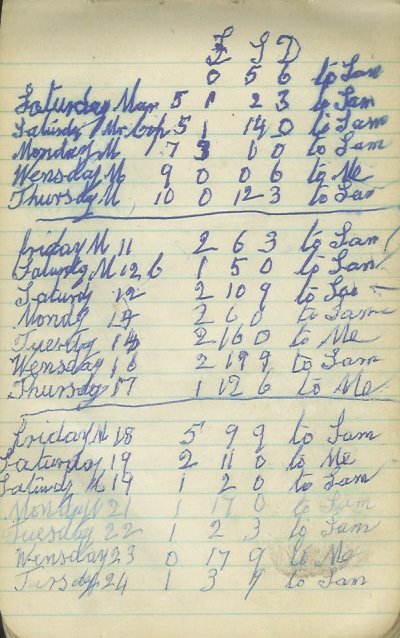 £ S D
0 5 6 to Sam
Saturday Mar 5 1 2 3 to Sam
Saturdy Mr 5 1 14 0 to Sam
Monday M 7 3 1 0 to Sam
Wensday M 9 0 0 6 to Me
Thursday M 10 0 12 3 to Sam
friday M 11 2 6 3 to Sam
Saturdy M 12 1 5 0 to Sam
Saturdy 12 2 10 9 to
Mondy 14 2 6 0 to Sam
Tuesday 2 16 0 to Me
Wensday 16 2 19 9 to Sam
Thursday 17 1 12 6 to Me
friday M 18 5 9 9 to Sam
Saturday 19 2 11 0 to Me
Saturdy M 19 1 2 0 to Sam
Monday M 21 1 17 0 to Sam
Tuesday 22 1 2 3 to Sam
Wensday 23 0 17 9 to Me
24 1 3 9 to Sam